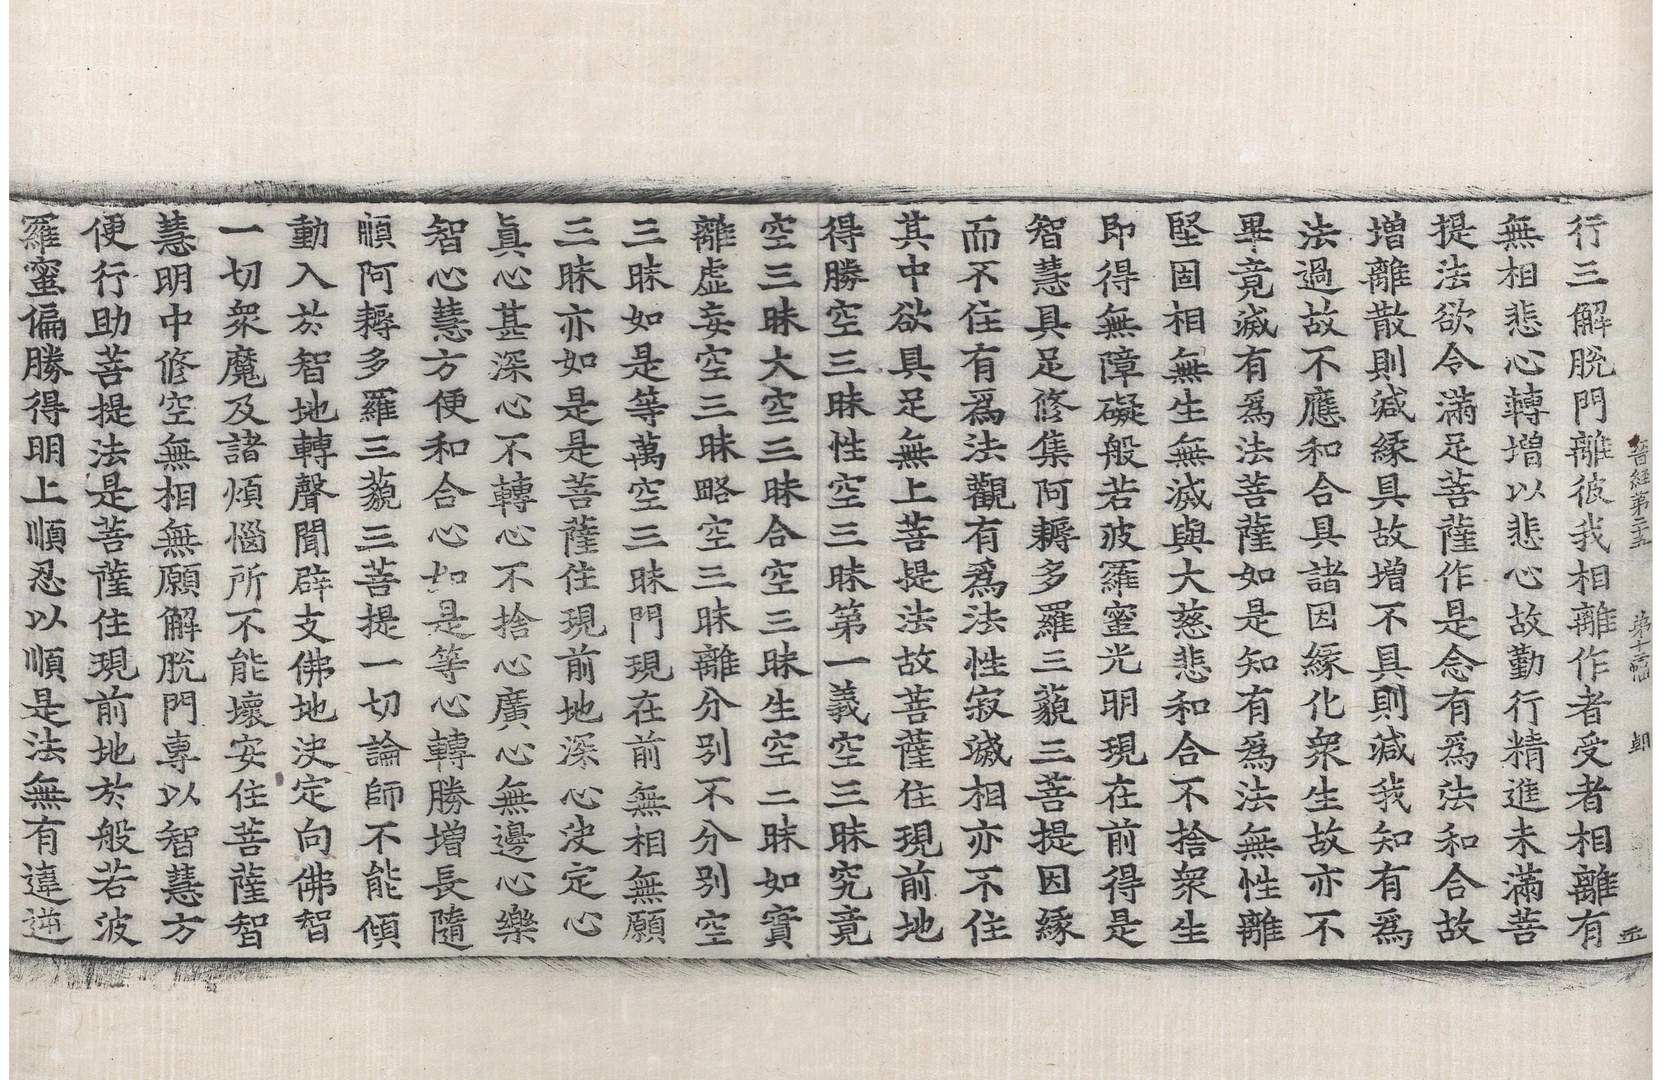 晉經第二十五 第十二幅 朝 五
行三解脫門離彼我相離作者受者相離有
無相悲心轉增以悲心故勤行精進未滿菩
提法欲令滿足菩薩作是念有爲法和合故
增離散則減緣具故增不具則減我知有爲
法過故不應和合具諸因緣化衆生故亦不
畢竟滅有爲法菩薩如是知有爲法無性離
堅固相無生無滅與大慈悲和合不捨衆生
即得無障礙般若波羅蜜光明現在前得是
智慧具足修集阿耨多羅三藐三菩提因緣
而不住有爲法觀有爲法性寂滅相亦不住
其中欲具足無上菩提法故菩薩住現前地
得勝空三昧性空三昧第一義空三昧究竟
空三昧大空三昧合空三昧生空三昧如實
離虛妄空三昧略空三昧離分別不分別空
三昧如是等萬空三昧門現在前無相無願
三昧亦如是是菩薩住現前地深心決定心
眞心甚深心不轉心不捨心廣心無邊心樂
智心慧方便和合心如是等心轉勝增長隨
順阿耨多羅三藐三菩提一切論師不能傾
動入於智地轉聲聞辟支佛地決定向佛智
一切衆魔及諸煩惱所不能壞安住菩薩智
慧明中修空無相無願解脫門專以智慧方
便行助菩提法是菩薩住現前地於般若波
羅蜜偏勝得明上順忍以順是法無有違逆